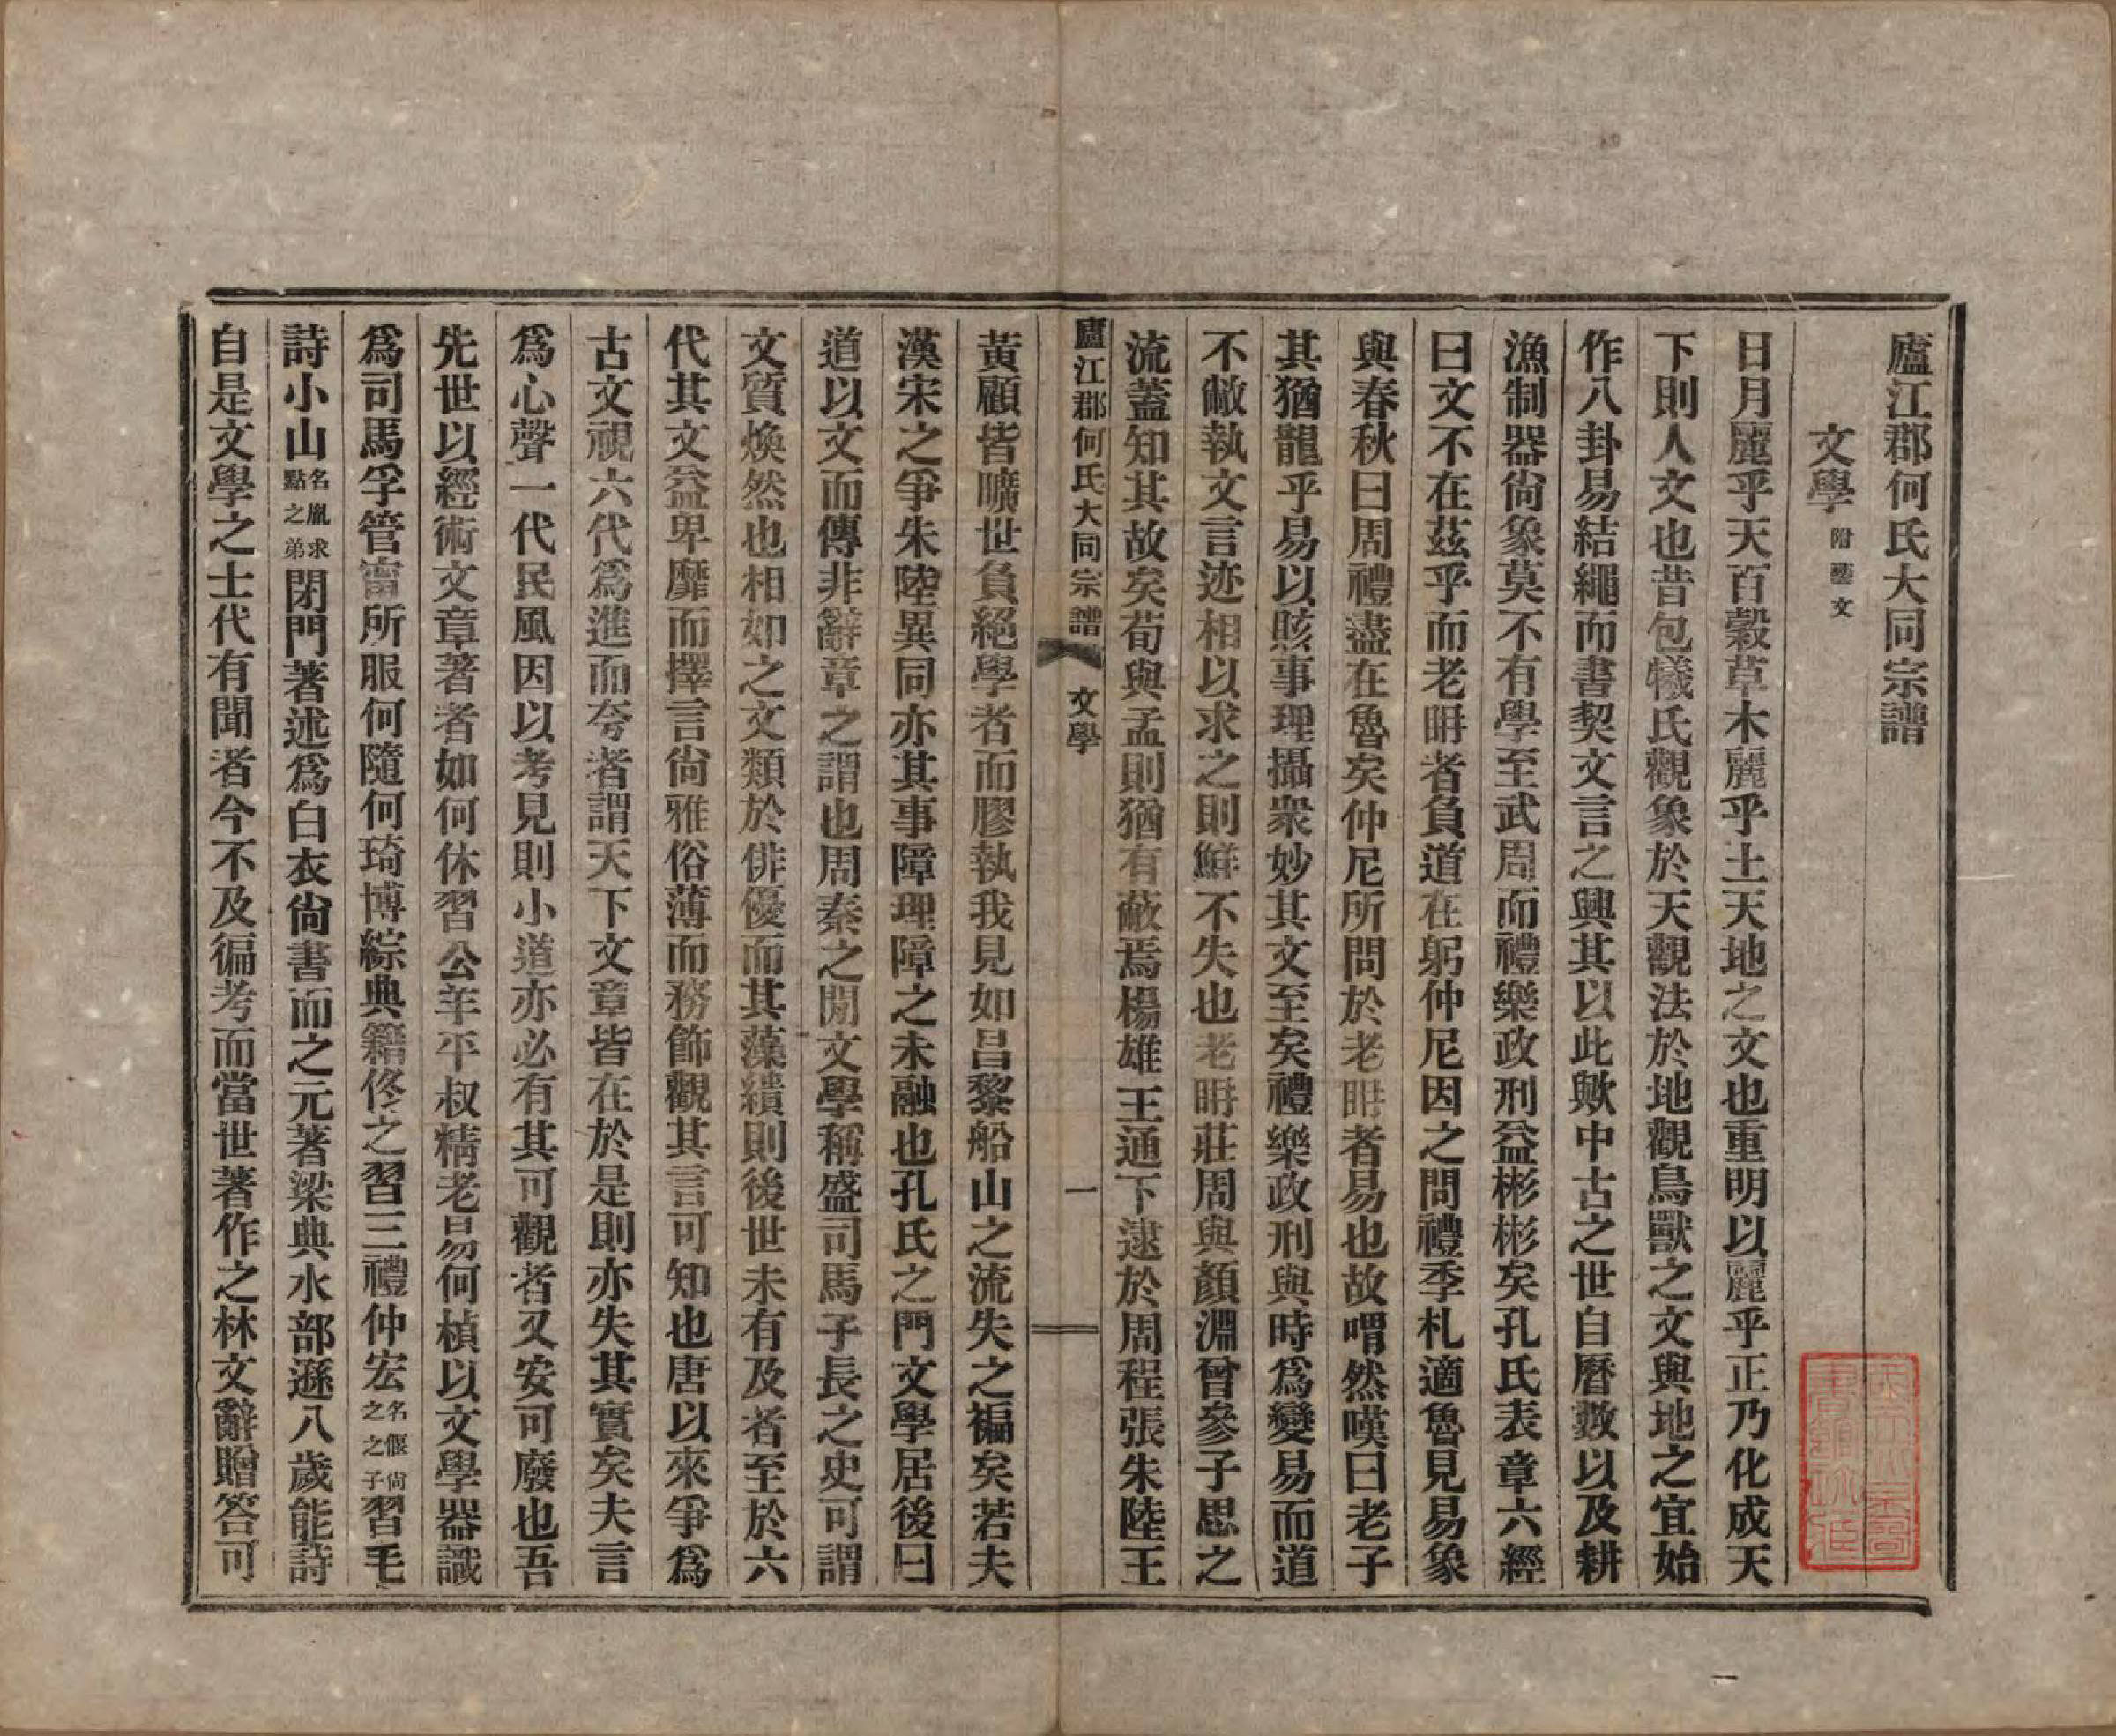 廬江郡何氏大同宗譜
文學附藝文
日月麗乎天百糓草木麗乎土天地之文也重明以麗乎正乃化成天
下則人文也昔包犧氏觀象於天觀法於地觀鳥獸之文與地之宜始
作八卦易結繩而書契文言之興其以此歟中古之世自曆數以及耕
漁制器尙象莫不有學至武周而禮樂政刑益彬彬矣孔氏表章六經
曰文不在茲乎而老耼者負道在躬仲尼因之問禮季札適魯見易象
與春秋曰周禮盡在魯矣仲尼所問於老耼者易也故喟然嘆曰老子
其猶龍乎易以賅事理攝衆妙其文至矣禮樂政刑與時爲變易而道
不敝執文言迹相以求之則鮮不失也老耼莊周與顏淵曾參子思之
流蓋知其故矣荀與孟則猶有蔽焉楊雄王通下逮於周程張朱陸王
廬江郡何氏大同宗譜 文學 一
黃顧皆曠世負絕學者而膠執我見如昌黎船山之流失之褊矣若夫
漢宋之爭朱陸異同亦其事障理障之未融也孔氏之門文學居後曰
道以文而傳非辭章之謂也周秦之閒文學稱盛司馬子長之史可謂
文質煥然也相如之文類於俳優而其藻繢則後世未有及者至於六
代其文益卑靡而擇言尙雅俗薄而務飾觀其言可知也唐以來爭爲
古文視六代爲進而夸者謂天下文章皆在於是則亦失其實矣夫言
爲心聲一代民風因以考見則小道亦必有其可觀者又安可廢也吾
先世以經術文章著者如何休習公羊平叔精老易何楨以文學器識
爲司馬孚管甯所服何隨何琦博綜典籍佟之習三禮仲宏名偃尙之之子習毛
詩小山名胤求點之弟閉門著述爲白衣尙書而之元著梁典水部遜八歲能詩
自是文學之士代有聞者今不及徧考而當世著作之林文辭贈答可